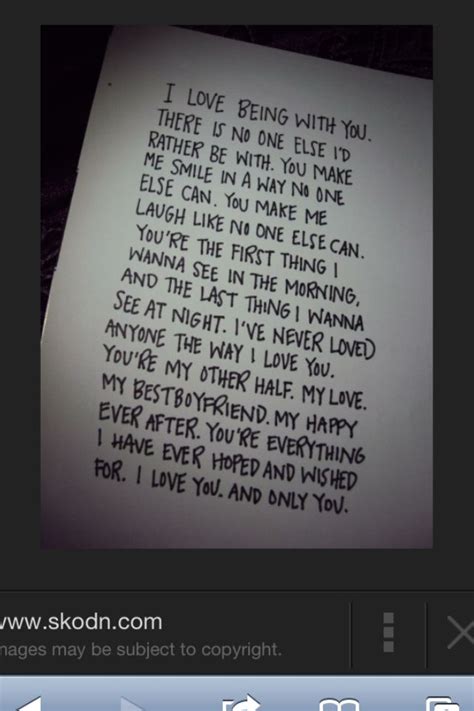 I LOVE BEING WITH YOU.
THERE IS NO ONE ELSE I'D
RATHER BE WITH. YOU MAKE
ME SMILE IN A WAY NO ONE
ELSE CAN. YOU MAKE ME
LAUGH LIKE NO ONE ELSE CAN.
YOU'RE THE FIRST THING I
WANNA SEE IN THE MORNING,
AND THE LAST THING I WANNA
SEE AT NIGHT. I'VE NEVER LOVED
ANYONE THE WAY I LOVE YOU.
YOU'RE MY OTHER HALF. MY LOVE.
MY BESTBOYFRIEND. MY HAPPY
EVER AFTER. YOU'RE EVERYTHING
I HAVE EVER HOPED AND WISHED
FOR. I LOVE YOU. AND ONLY YOU.
www.skodn.com
nages may be subject to copyright.